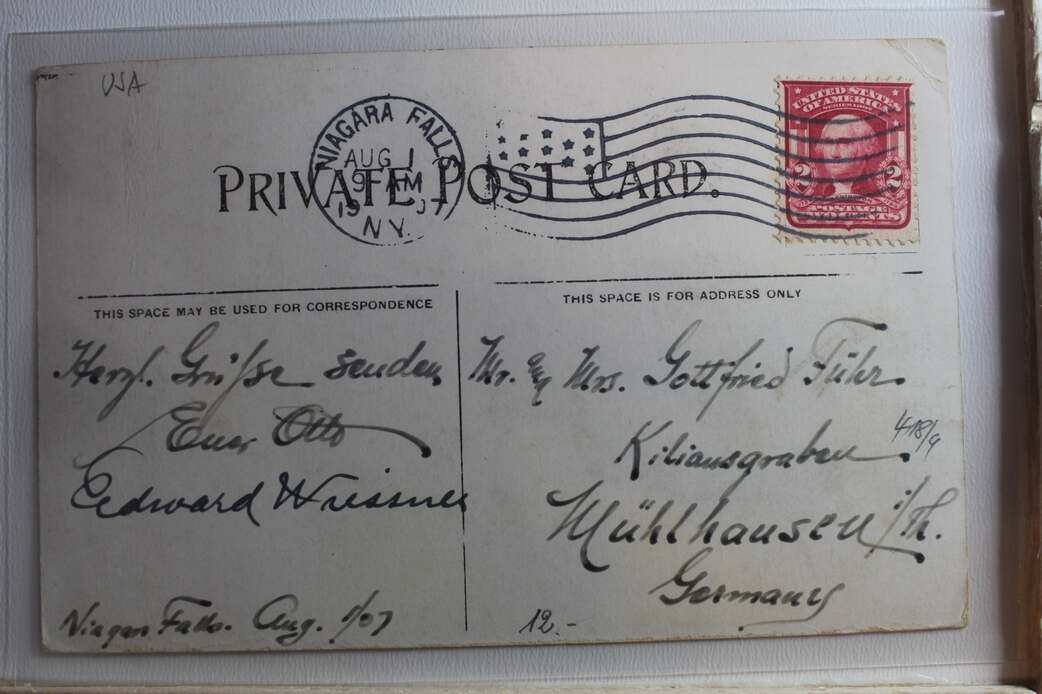 USA
NIAGARA FALLS
AUG 1
9 AM
N.Y.
UNITED STATES
OF AMERICA
2 2
POSTAGE
PRIVATE POST CARD.
THIS SPACE MAY BE USED FOR CORRESPONDENCE
THIS SPACE IS FOR ADDRESS ONLY
Herzl. Grüsse senden
Euer Otto
Edward Wiessner
Niagara Falls. Aug. 1/07
Mr. & Mrs. Gottfried Führ.
Kiliansgraben
418/9
Mühlhausen i/Th.
Germany
12.-